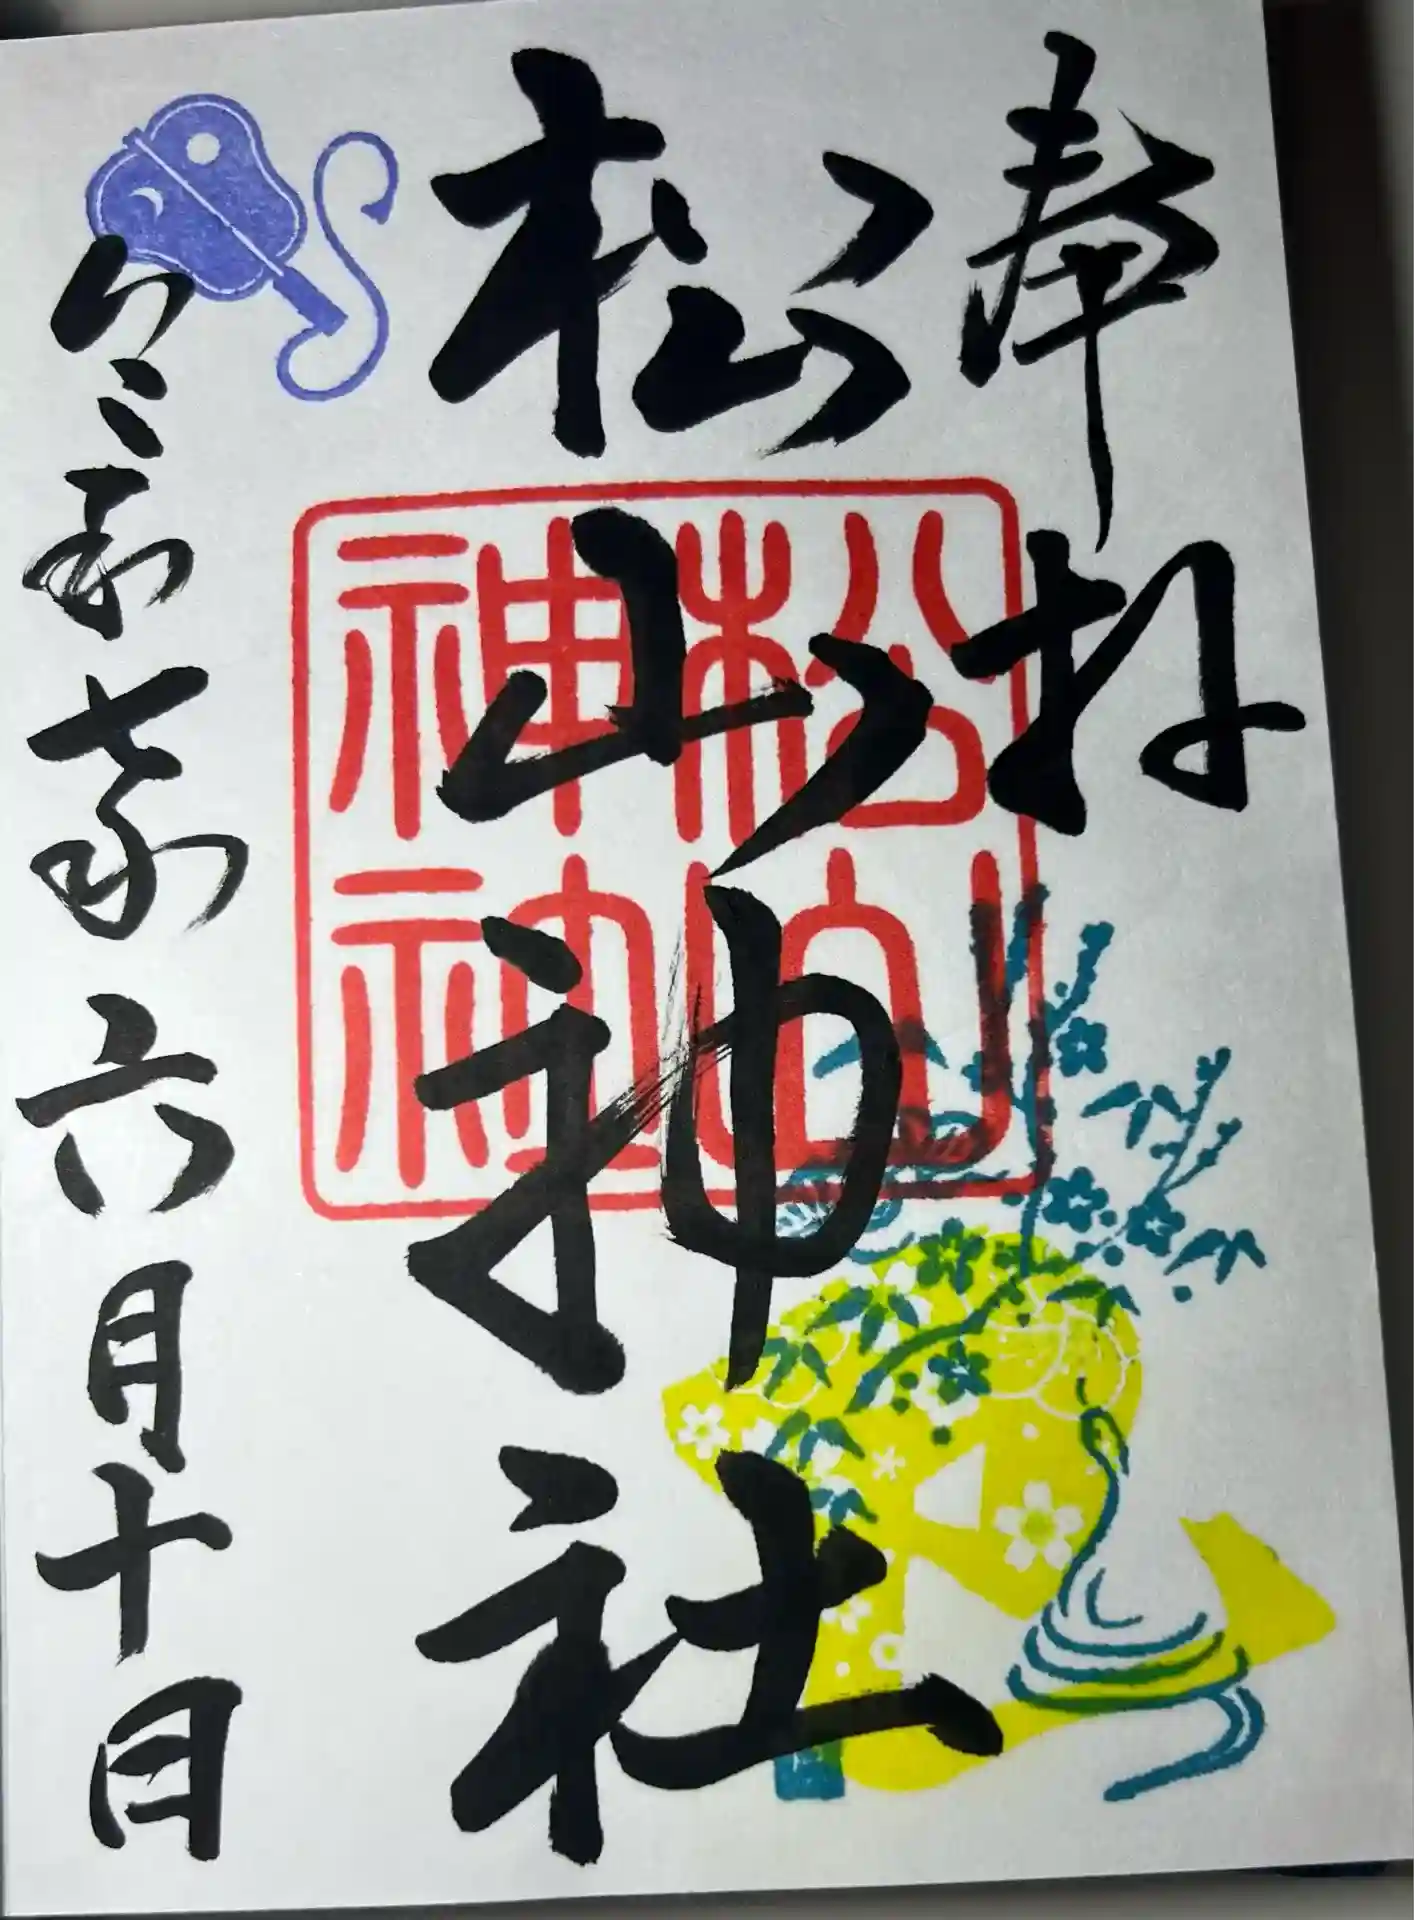 奉拝
松山神社
松山
神社
令和七年六月十日